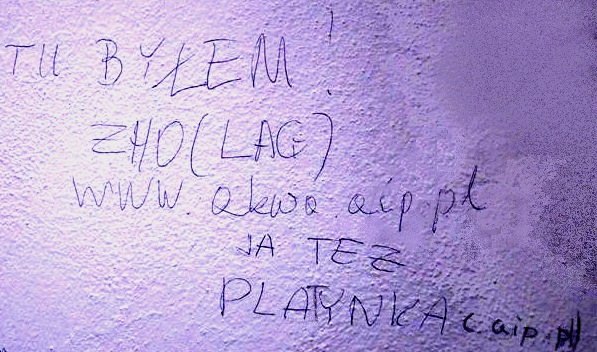 TU BYŁEM!
ZHO(LAG)
www.akwa.aip.pl
JA TEZ
PLATYNKA c.aip.pl